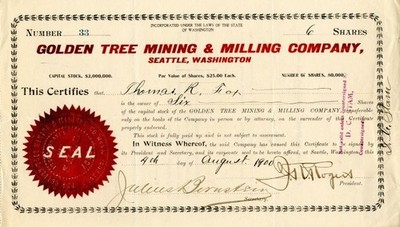 INCORPORATED UNDER THE LAWS OF THE STATE
OF WASHINGTON
NUMBER 33 6 SHARES
GOLDEN TREE MINING & MILLING COMPANY,
SEATTLE, WASHINGTON
CAPITAL STOCK, $2,000,000. Par Value of Shares, $25.00 Each. NUMBER OF SHARES, 80,000.
This Certifies that Thomas R. Fox
is the owner of Six Shares
of the capital stock of the GOLDEN TREE MINING & MILLING COMPANY, transferable
only on the books of the Company in person or by attorney, on the surrender of this Certificate
properly endorsed.
This stock is fully paid up and is not subject to assessment.
In Witness Whereof, the said Company has caused this Certificate to be signed by
its President and Secretary, and its corporate seal to be hereto affixed, at Seattle, Washington this
4th day of August 1900
SEAL
Julius Bornstein
Secretary.
President.